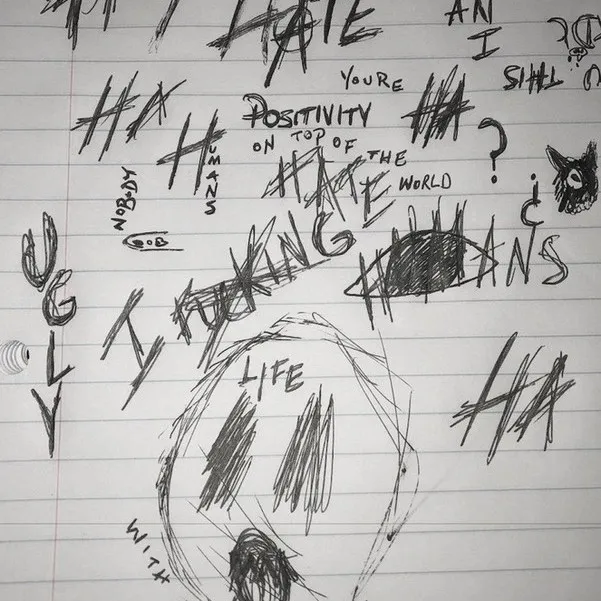 HATE
AN
I
SIHT
YOU'RE
HA
POSITIVITY
HA
?
HUMANS
ON TOP OF
THE
HATE
WORLD
NOBODY
¿
FUCKING
HUMANS
UGLY
I
LIFE
HA
WITH